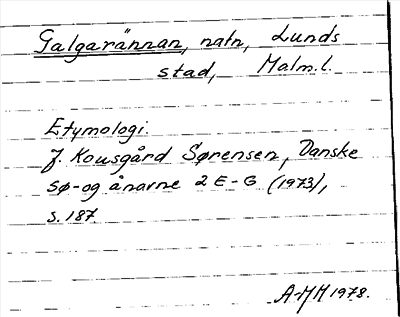 Galgarännan, natn, Lunds
stad, Malm.l.
Etymologi.
J. Kousgård Sørensen, Danske
sø- og ånavne 2 E-G (1973),
s. 187
A-MH 1978.